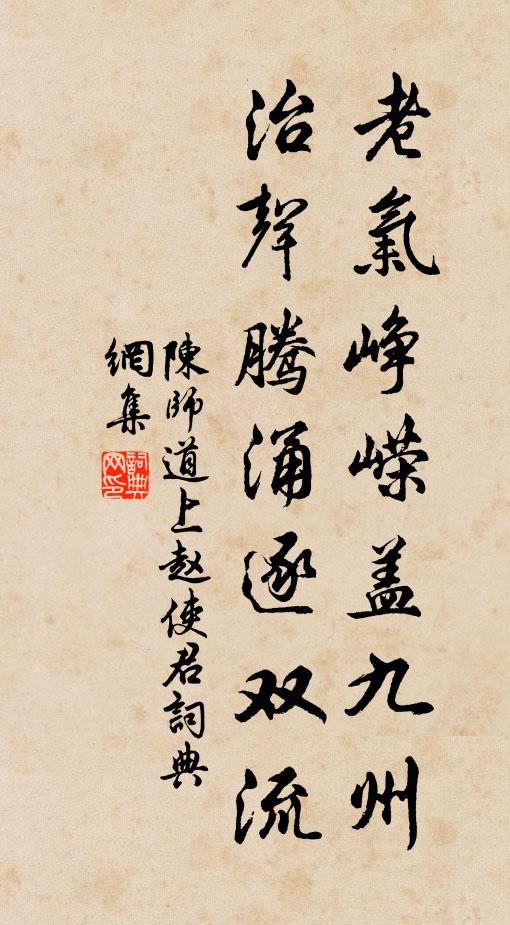 老氣崢嶸盖九州
治聲腾涌逐双流
陳師道上赵使君詞典
網集
詞典網印